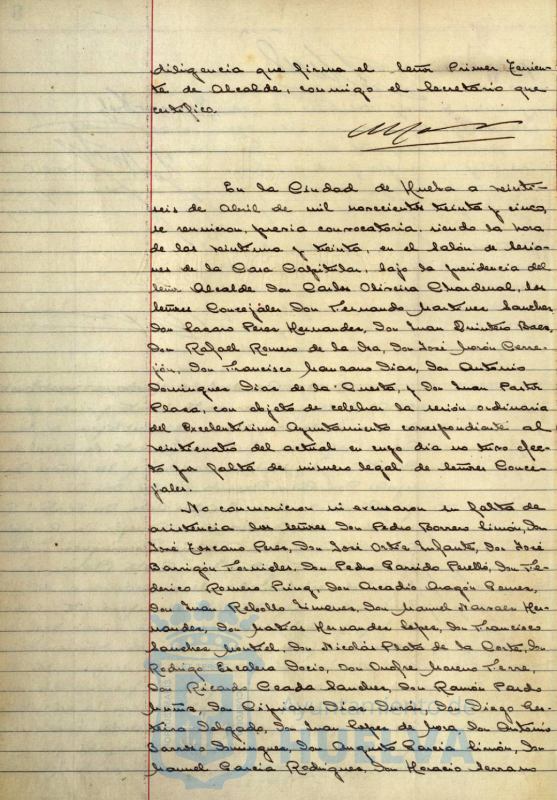 diligencia que firma el Señor Primer Tenien-
te de Alcalde, conmigo el Secretario que
certifico.
En la Ciudad de Huelva a veinti-
seis de Abril de mil novecientos treinta y cinco,
se reunieron, previa convocatoria, siendo la hora
de las veintiuna y treinta, en el Salón de Sesio-
nes de la Casa Capitular, bajo la presidencia del
Señor Alcalde Don Carlos Oliveira Chardenal, los
señores Concejales Don Fernando Martinez Sanchez,
Don Lazaro Perez Hernandez, Don Juan Quintero Baez,
Don Rafael Romero de la Isa, Don José Morón Cerre-
jón, Don Francisco Manzano Diaz, Don Antonio
Dominguez Diaz de la Cuesta, y Don Juan Pastor
Plaza, con objeto de celebrar la sesión ordinaria
del Excelentísimo Ayuntamiento correspondiente al
veinticuatro del actual en cuyo dia no tuvo efec-
to por falta de número legal de señores Conce-
jales.
No concurrieron ni excusaron su falta de
asistencia los señores Don Pedro Borrero Limón, Don
José Toscano Perez, Don José Ortiz Infante, Don José
Barrigón Fornieles, Don Pedro Garrido Perelló, Don Fe-
derico Romero Don Arcadio Aragón Gomez,
Don Juan Rebollo Jimenez, Don Manuel Narvaez Her-
nandez, Don Matías Hernandez Lopez, Don Francisco
Sanchez Montiel, Don Nicolás Prats de la Corte, Don
Rodrigo Docio, Don Onofre Moreno Ferre,
Don Ricardo Ceada Sanchez, Don Ramón Pardo
Muñiz, Don Cipriano Diaz Durán, Don Diego Ler-
Delgado, Don Juan Lopez de Mora, Don Antonio
Barroso Dominguez, Don Augusto Garcia Limón, Don
Manuel Garcia Rodriguez, Don Horacio Serrano
Ayuntamiento de
HUELVA